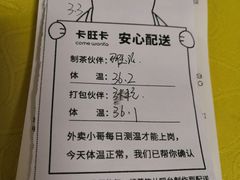 3.3
卡旺卡 安心配送
come wanta
制茶伙伴：
体 温：36.2
打包伙伴：
体 温：36.1
外卖小哥每日测温才能上岗，
今天体温正常，我们已帮你确认